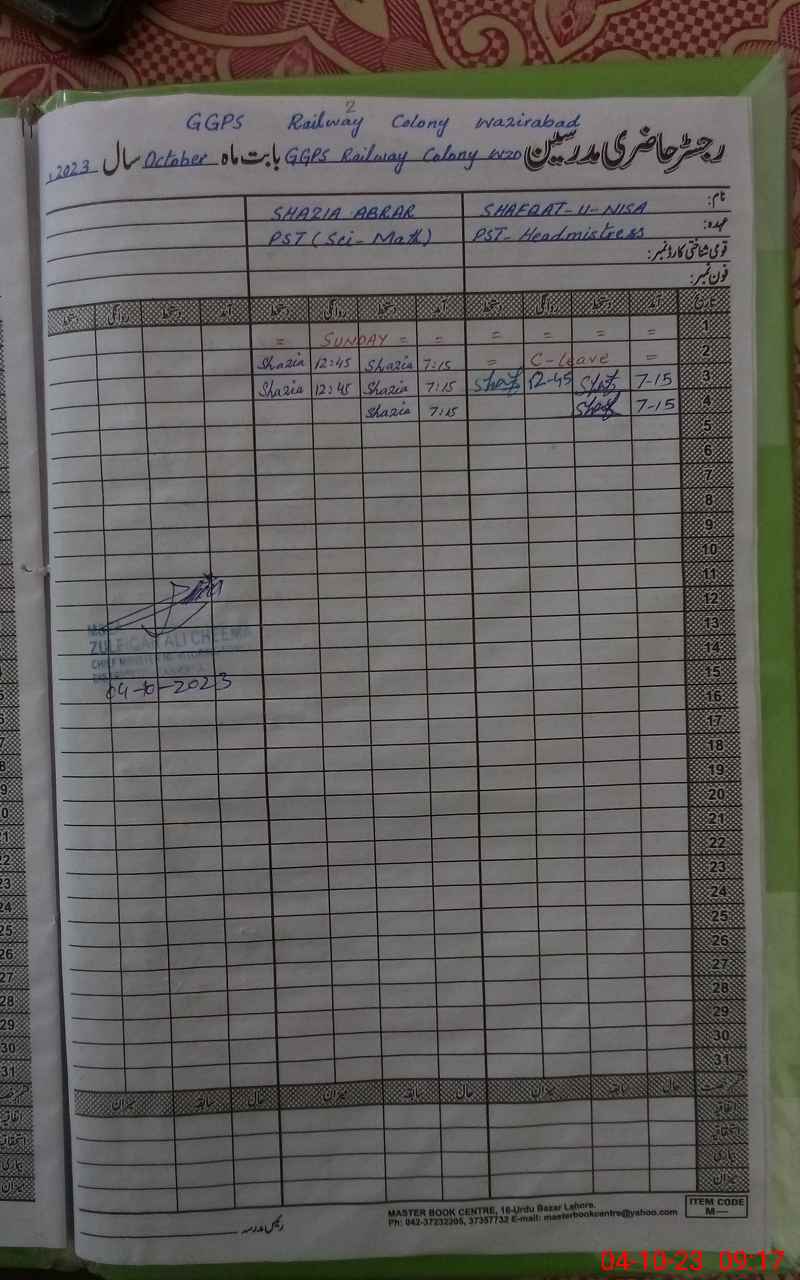 2
GGPS Railway Colony Wazirabad
رجسٹر حاضری مدرسین GGPS Railway Colony WZD بابت ماہ October سال 2023ء
نام: SHAFQAT-U-NISA SHAZIA ABRAR
عہدہ: PST-Headmistress PST (Sci-Math)
قومی شناختی کارڈ نمبر:
فون نمبر:
تاریخ آمد دستخط روانگی دستخط آمد دستخط روانگی دستخط آمد دستخط روانگی دستخط
1 = = = = = = SUNDAY =
2 = C-leave = 7:15 Shazia 12:45 Shazia
3 7-15 Shaf 12-45 Shaf 7:15 Shazia 12:45 Shazia
4 7-15 Shaf 7:15 Shazia
5
6
7
8
9
10
11
12
13
ZULFIQAR ALI CHEEMA
14
15
04-10-2023
16
17
18
19
20
21
22
23
24
25
26
27
28
29
30
31
حال سابقہ میزان حال سابقہ میزان حال سابقہ میزان
اتفاقیہ
استحقاقیہ
بیماری
میزان
رئیس مدرسہ
MASTER BOOK CENTRE, 16-Urdu Bazar Lahore.
Ph: 042-37232205, 37357732 E-mail: masterbookcentre@yahoo.com
ITEM CODE
M—
04-10-23 09:17